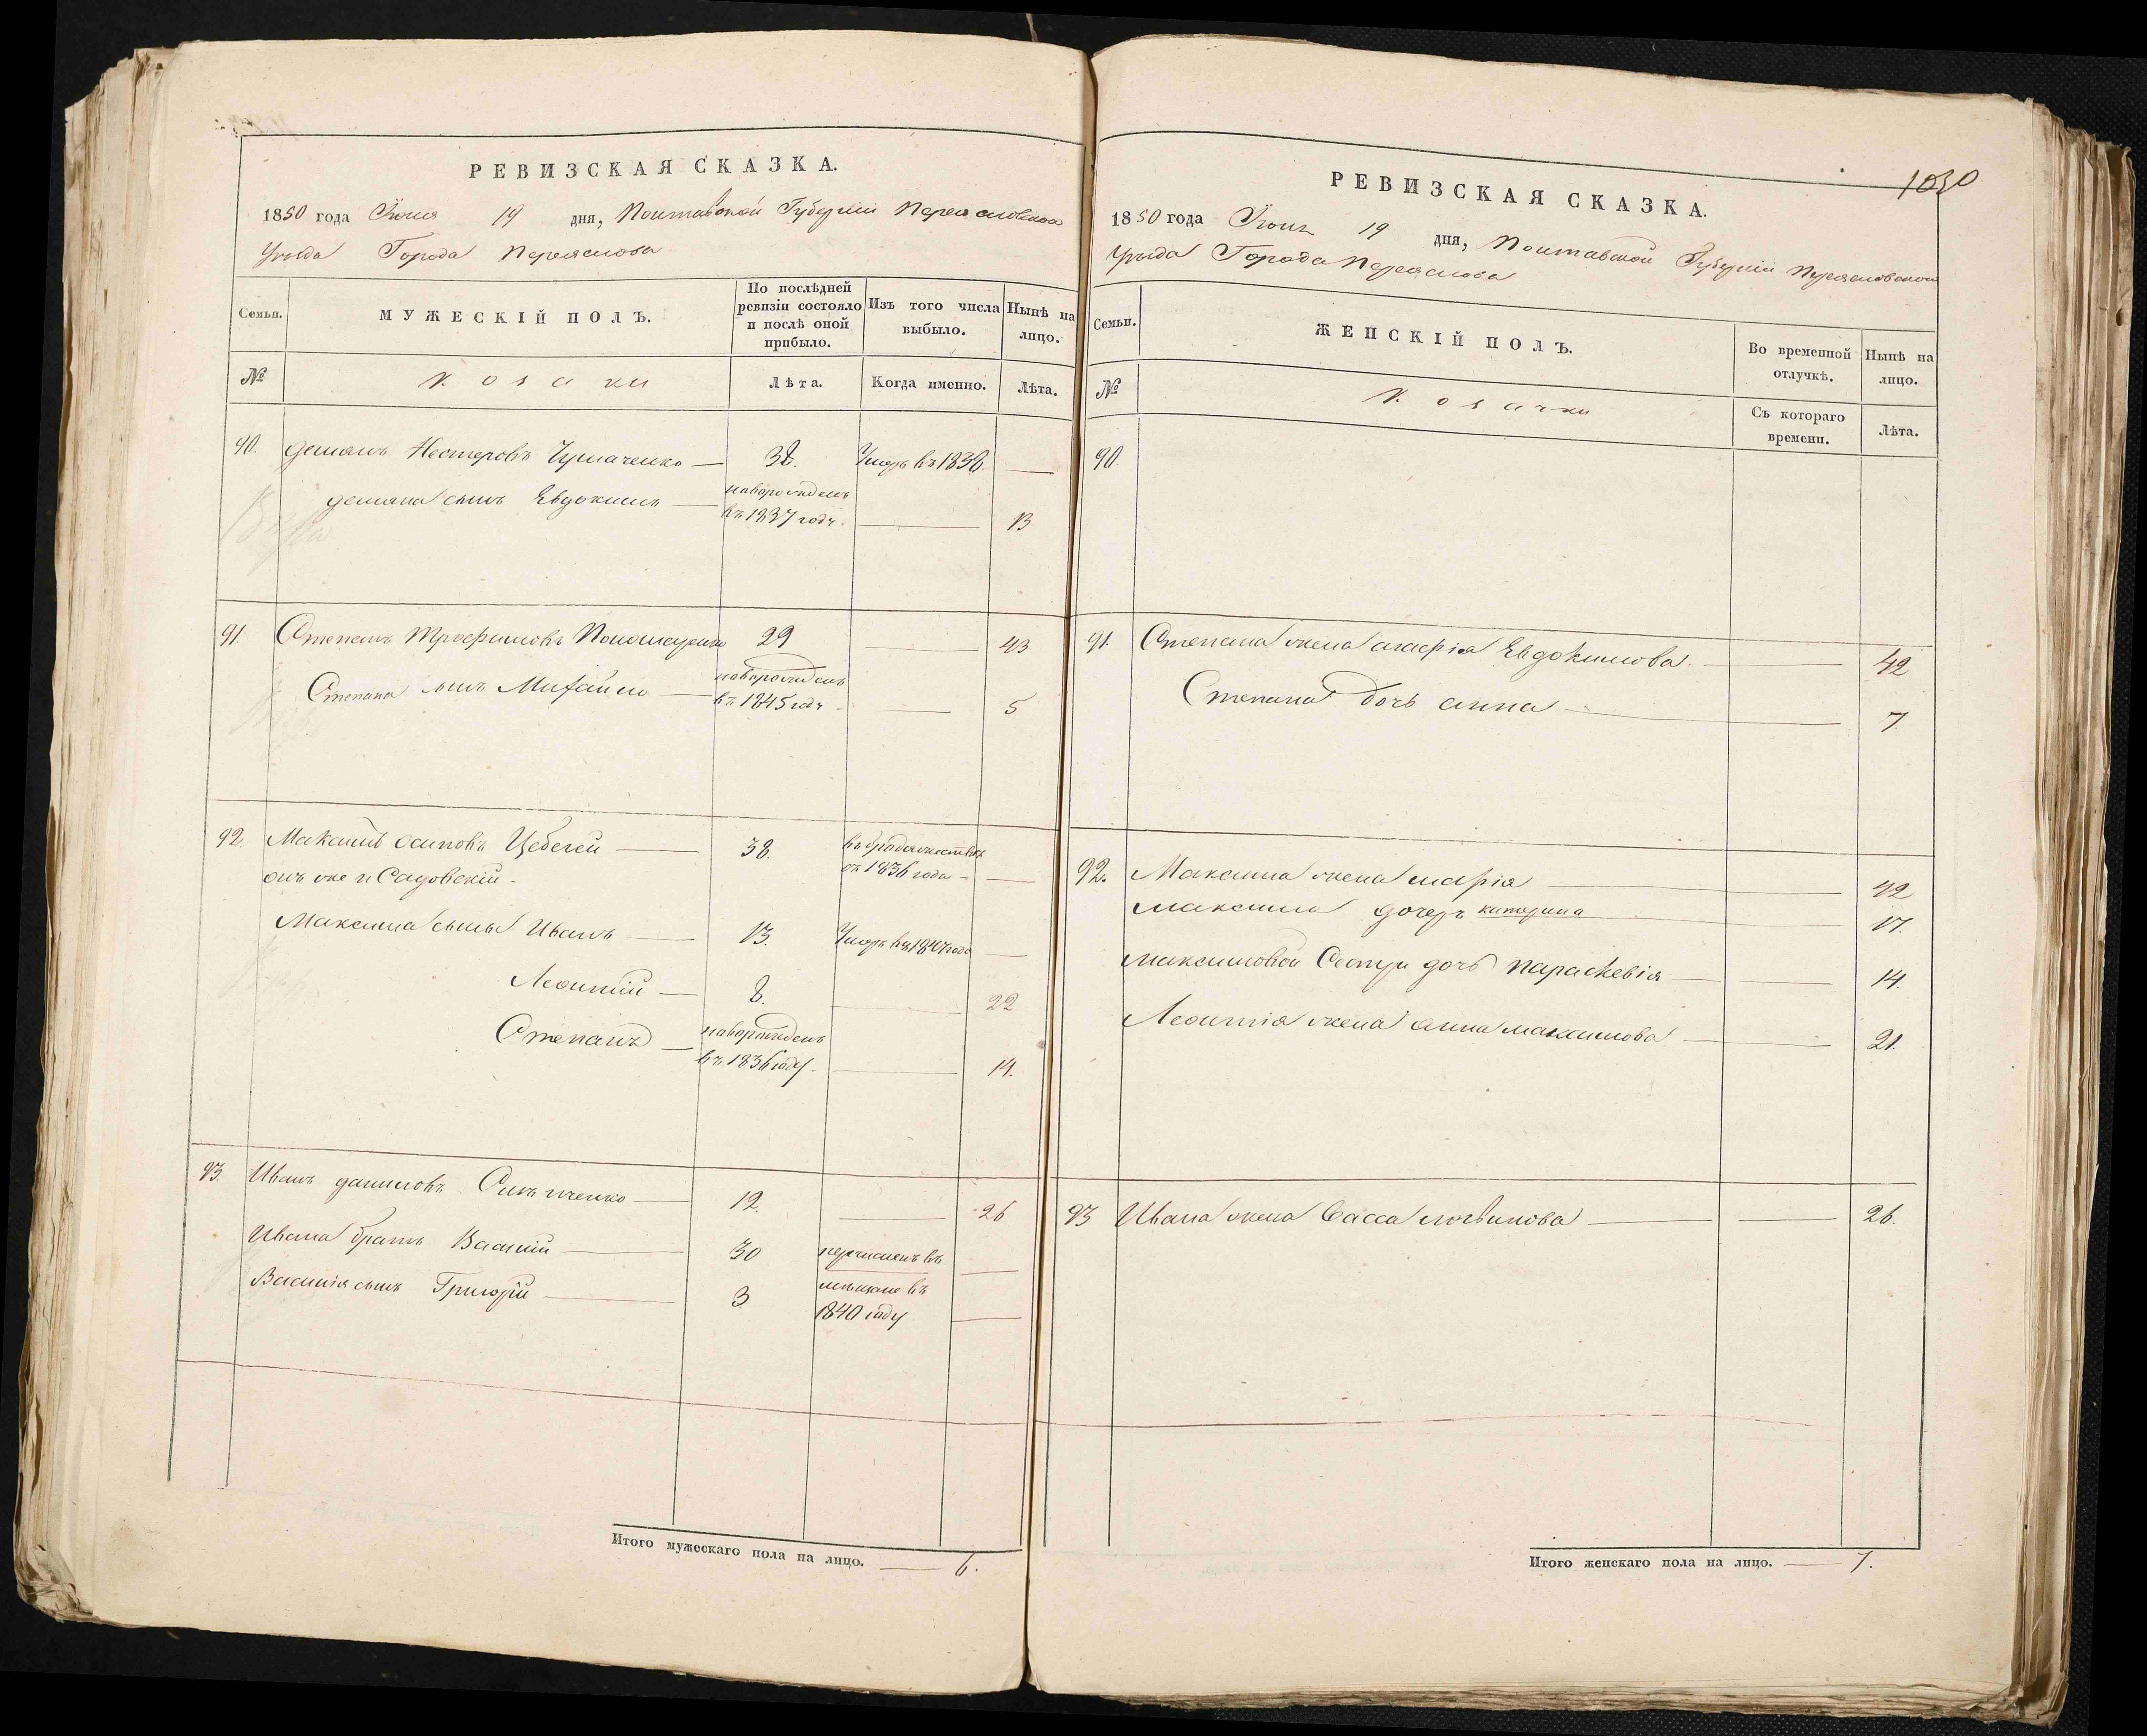 РЕВИЗСКАЯ СКАЗКА.
1850 года Іюня 19 дня, Полтавской Губерніи Переясловскаго
Уѣзда Города Переяслова
Семьи.
МУЖЕСКІЙ ПОЛЪ.
По послѣдней ревизіи состояло и послѣ оной прибыло.
Изъ того числа выбыло.
Нынѣ на лицо.
№
Козаки
Лѣта.
Когда именно.
Лѣта.
90. Демянъ Нестеровъ Чумаченко — 38. Умеръ въ 1838. —
Демяна сынъ Евдокимъ — новорожденъ
въ 1837 году. — 13
91. Степанъ Трофимовъ 29 — 43
Степана сынъ Михайло — новорожденъ
въ 1845 году — 5
92. Максимъ Осиповъ Цебегей — 38. въ бродяжествѣ
онъ же и Садовскій - съ 1836 года — —
Максима сынъ Иванъ — 13. Умеръ въ году —
Леонтій — 8. — 22
Степанъ — новорожденъ
въ 1836 году. — 14.
93. Иванъ Даниловъ — 12. — 26
Ивана братъ Василій — 30 перечисленъ въ —
Василія сынъ Григорій — 3 мѣщане въ
1840 году —
Итого мужескаго пола на лицо. — 6.
1030
РЕВИЗСКАЯ СКАЗКА.
1850 года Іюня 19 дня, Полтавской Губерніи Переясловскаго
Уѣзда Города Переяслова
Семьи.
ЖЕНСКІЙ ПОЛЪ.
Во временной отлучкѣ.
Нынѣ на лицо.
№
Козачки
Съ котораго времени.
Лѣта.
90.
91. Степана жена Евдокимова — — 42
Степана дочь Анна — — 7.
92. Максима жена Марія — 42
Максима дочерь катерина 17.
Максимовой Сестры дочь Параскевія — — 14.
Леонтія жена Анна Максимова — — 21.
93 Ивана жена Васса Логвинова — — 26.
Итого женскаго пола на лицо. — 7.